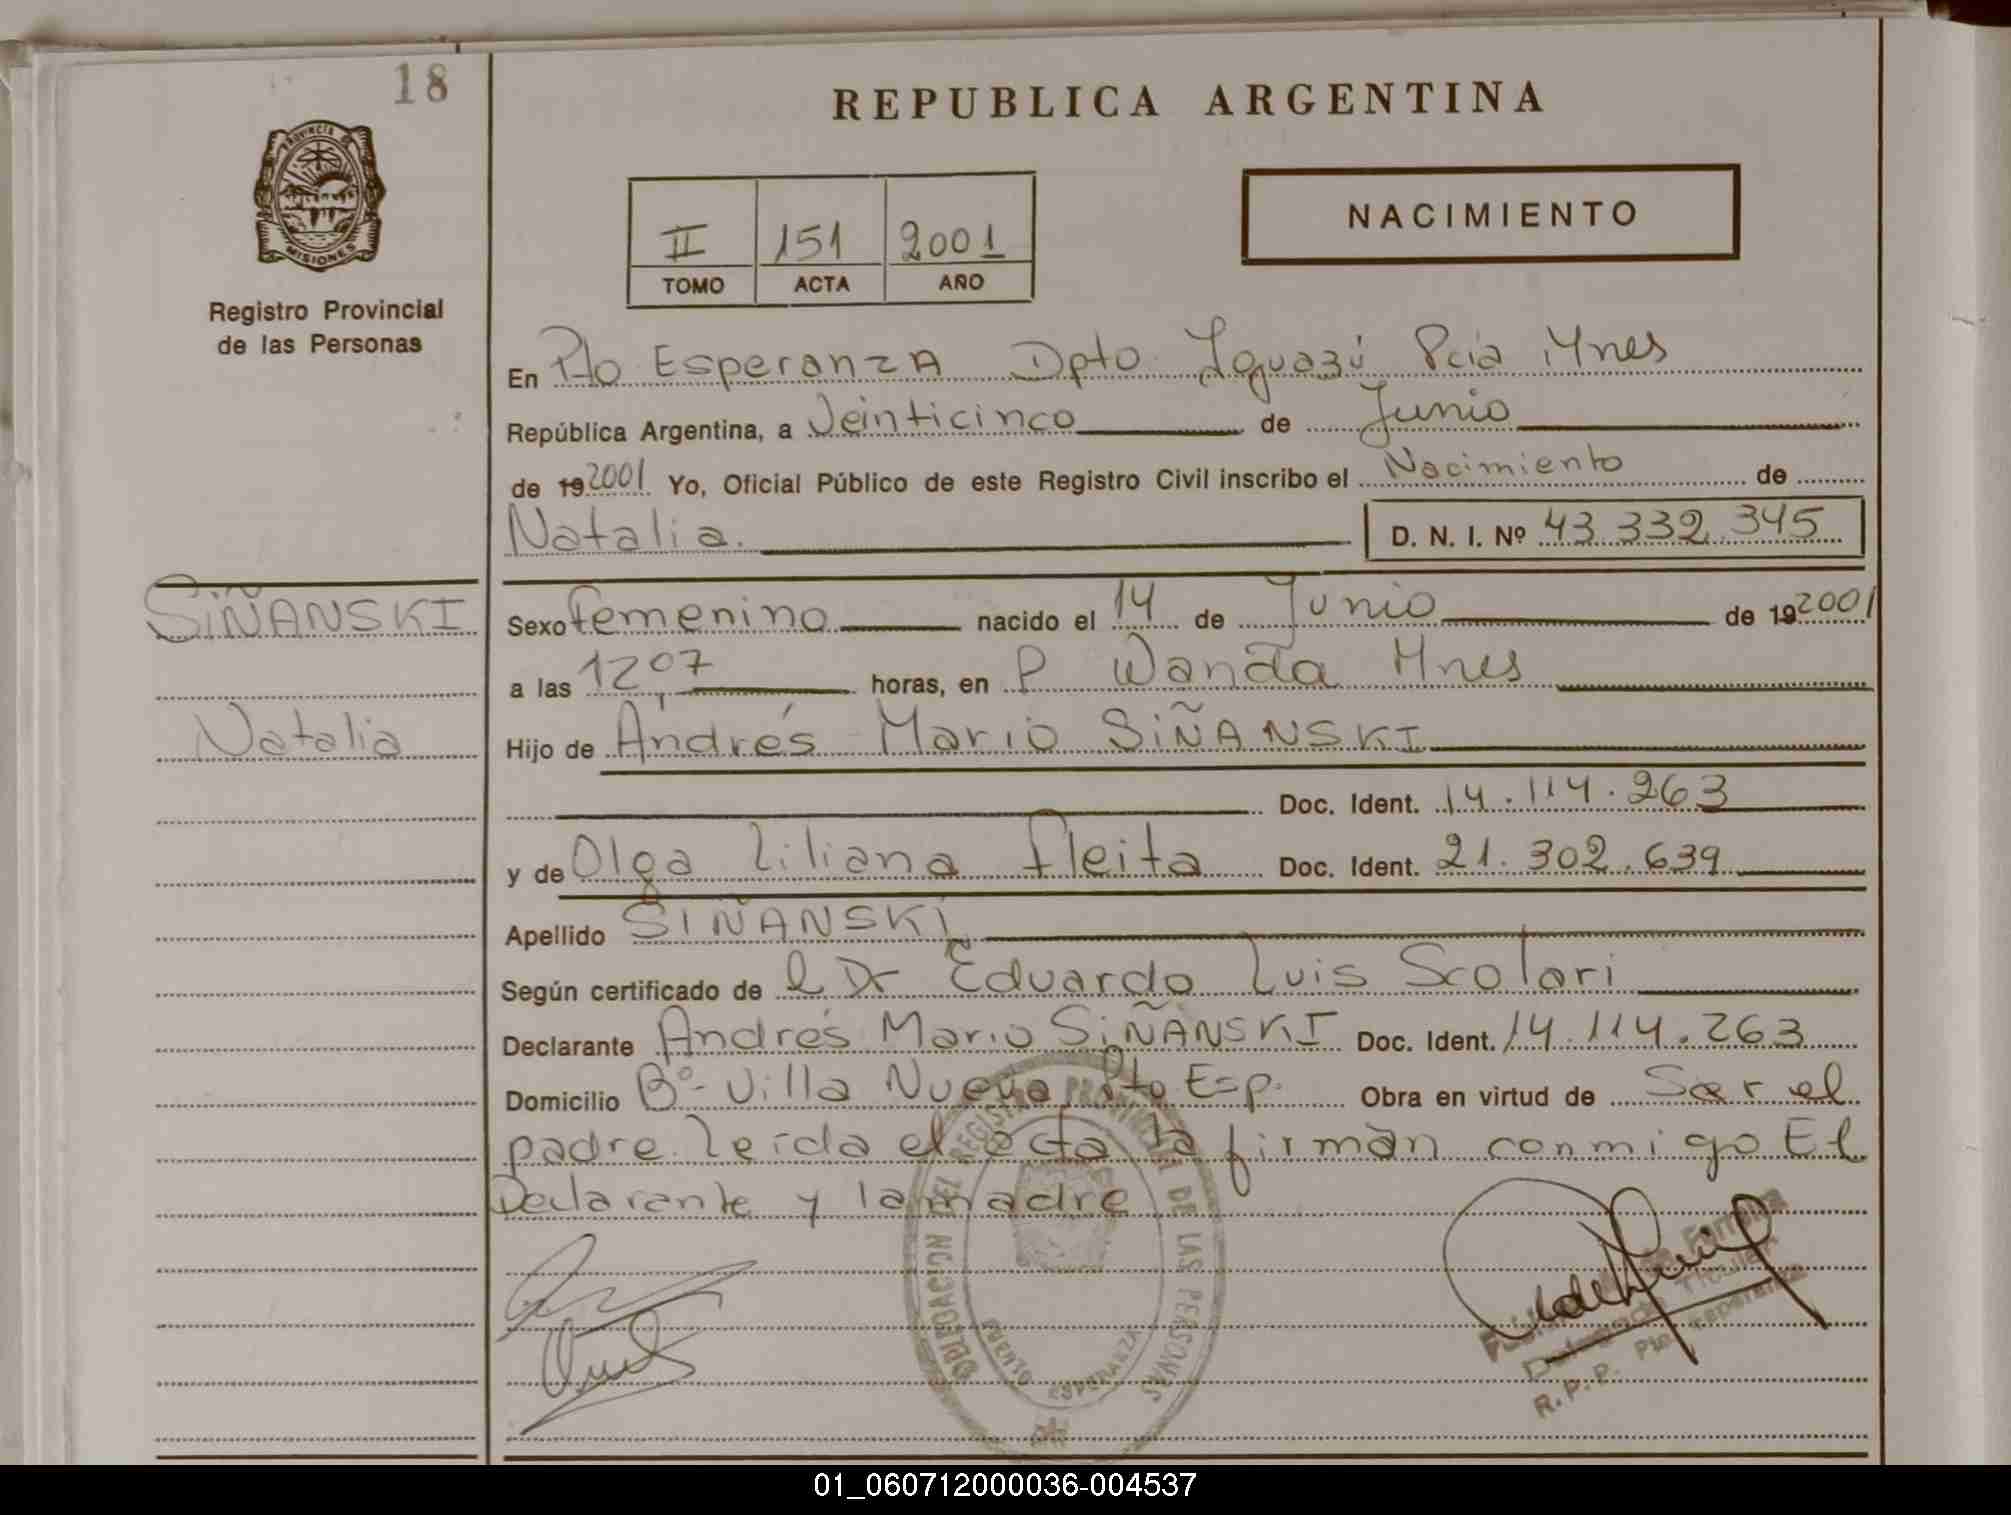 18
REPUBLICA ARGENTINA
PROVINCIA DE
MISIONES
Registro Provincial
de las Personas
II 151 2001
TOMO ACTA AÑO
NACIMIENTO
En Pto Esperanza Dpto Iguazú Pcia Mnes
República Argentina, a Veinticinco de Junio
de 19 2001 Yo, Oficial Público de este Registro Civil inscribo el Nacimiento de
Natalia. D. N. I. Nº 43.332.345
SIÑANSKI
Natalia
Sexo Femenino nacido el 14 de Junio de 19 2001
a las 12,07 horas, en P Wanda Mnes
Hijo de Andrés Mario SIÑANSKI
Doc. Ident. 14.114.263
y de Olga Liliana Fleita Doc. Ident. 21.302.639
Apellido SIÑANSKI
Según certificado de l Dr Eduardo Luis Scolari
Declarante Andrés Mario SIÑANSKI Doc. Ident. 14.114.263
Domicilio Bº- Villa Nueva Pto Esp. Obra en virtud de Ser el
padre. Leída el acta la firman conmigo El
Declarante y la madre
DELEGACION DEL REGISTRO PROVINCIAL DE LAS PERSONAS
PUERTO ESPERANZA
Titular
R.P.P. Pto. Esperanza
01_060712000036-004537